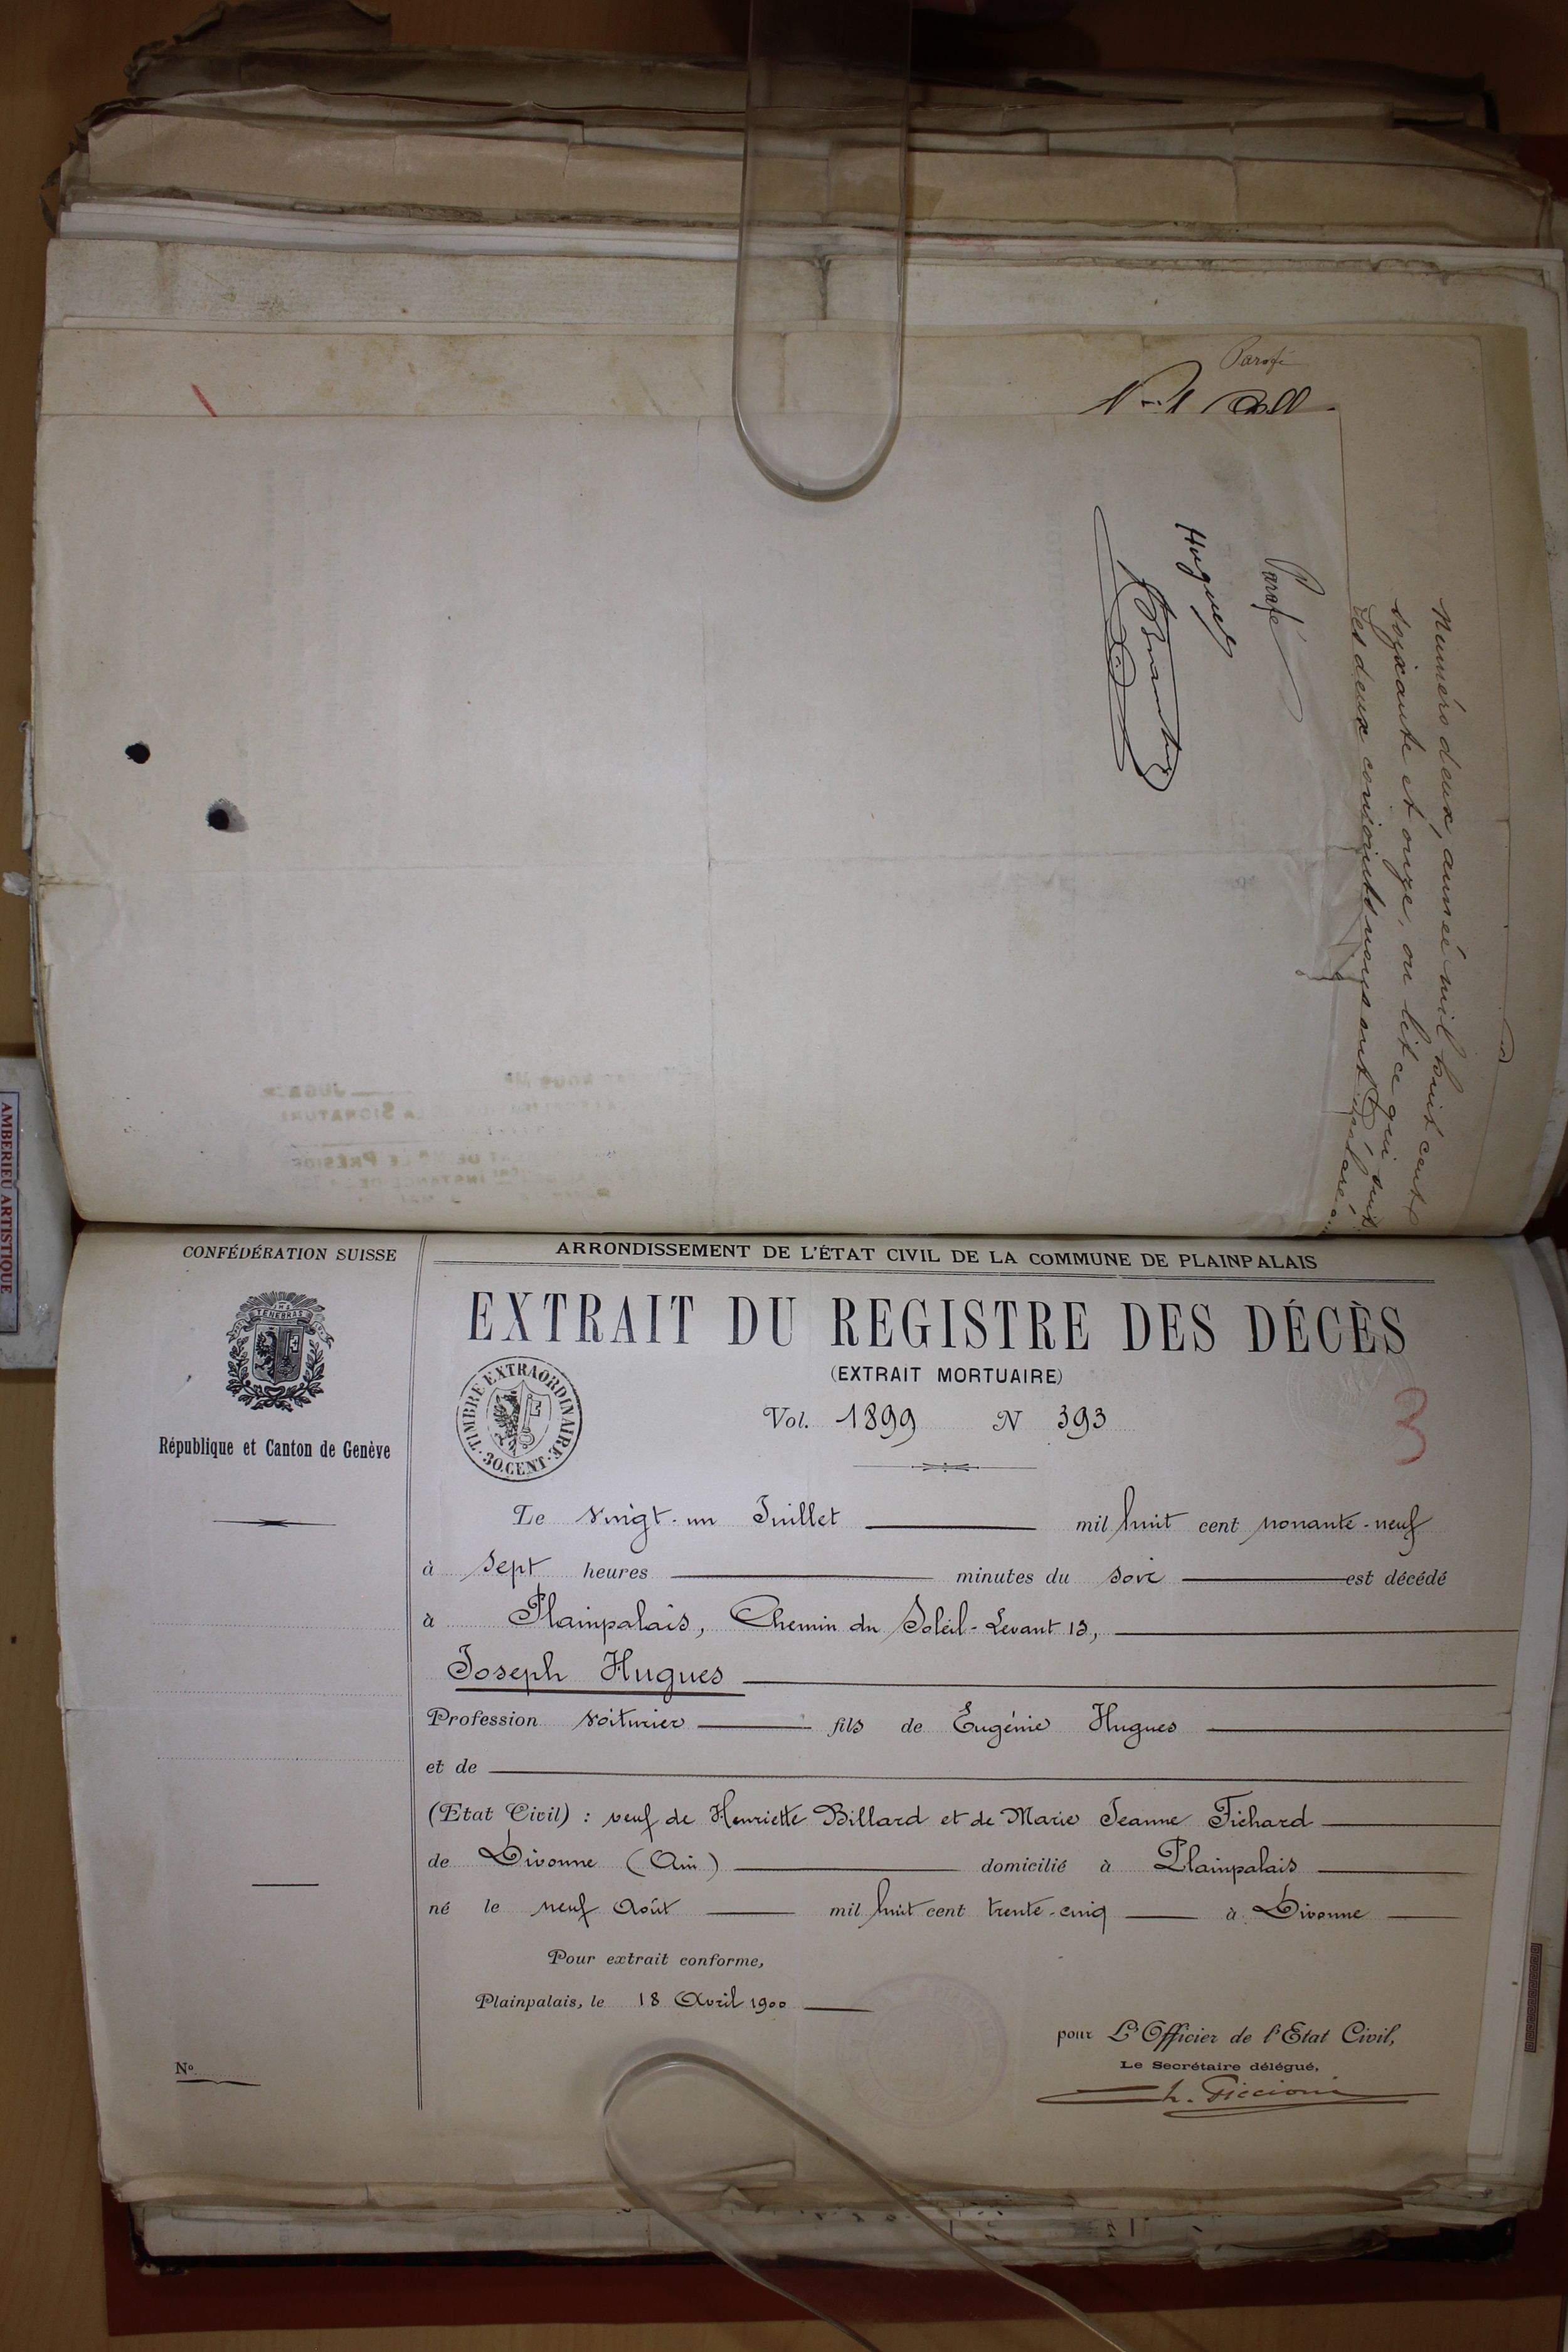 Parafé
Numéro deux, année mil huit cent
soixante et onze, on lit ce qui suit
Parafé
Hugues
AMBERIEU ARTISTIQUE
CONFÉDÉRATION SUISSE
TENEBRAS
République et Canton de Genève
No
ARRONDISSEMENT DE L'ÉTAT CIVIL DE LA COMMUNE DE PLAINPALAIS
EXTRAIT DU REGISTRE DES DÉCÈS
(EXTRAIT MORTUAIRE)
TIMBRE EXTRAORDINAIRE
30 CENT.
Vol. 1899 N 393
3
Le vingt-un Juillet mil huit cent nonante-neuf
à sept heures minutes du soir est décédé
à Plainpalais, Chemin du Soleil-Levant 13,
Joseph Hugues
Profession voiturier fils de Eugénie Hugues
et de
(Etat Civil) : veuf de Henriette Billard et de Marie Jeanne Fichard
de Divonne (Ain) domicilié à Plainpalais
né le neuf Août mil huit cent trente-cinq à Divonne
Pour extrait conforme,
Plainpalais, le 18 Avril 1900
pour L'Officier de l'Etat Civil,
Le Secrétaire délégué,
h. Piccioni